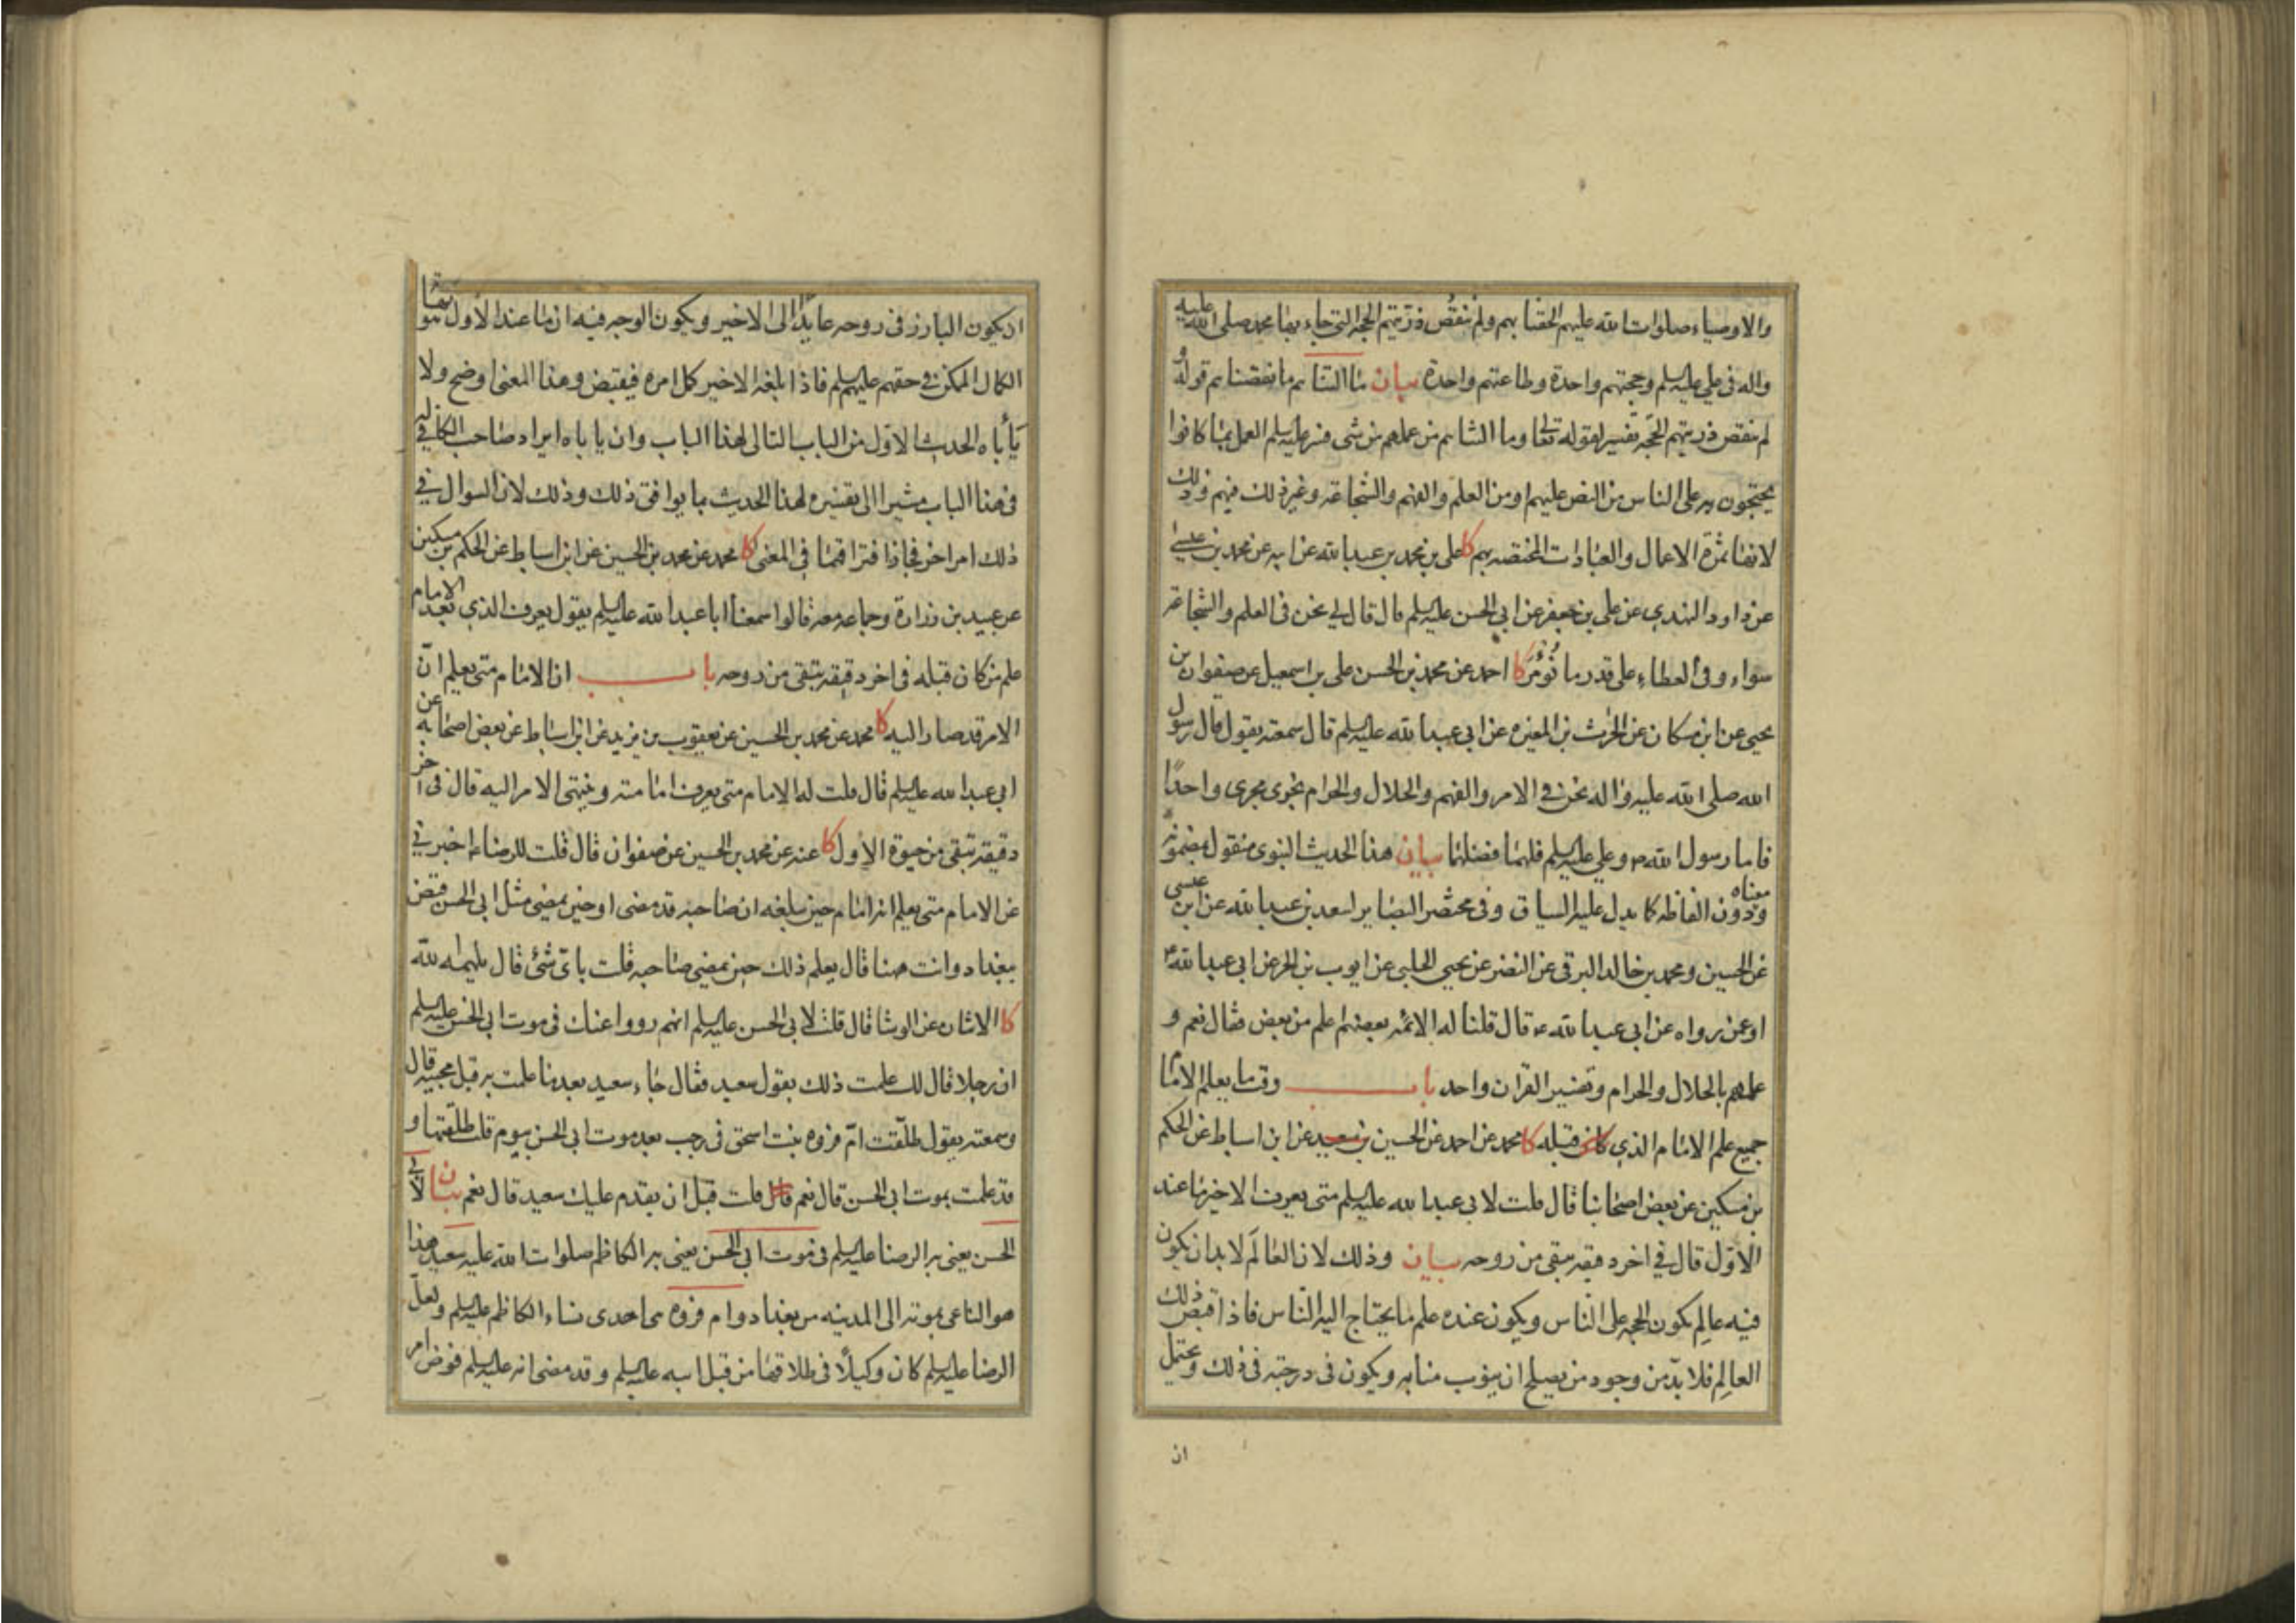 والاوصياء صلوات الله عليهم الحقنا بهم ولم ننقص ذريتهم الحجة التي جاء بها محمد صلى الله عليه
واله في علي عليه السلم وحجتهم واحدة وطاعتهم واحدة بيان ما التناهم ما نقصناهم وقوله
لم ننقص ذريتهم الحجة تفسير لقوله تعالى وما التناهم من عملهم من شئ فسر عليه السلم العمل بما كانوا
يحتجون به على الناس من النص عليهم او من العلم والفهم والشجاعة وغير ذلك فيهم وذلك
لانها ثمرة الاعمال والعبادات المختصه بهم كا علي بن محمد بن عبد الله عن ابيه عن محمد بن عيسى
عن داود النهدي عن علي بن جعفر عن ابي الحسن عليه السلم قال قال لي نحن في العلم والشجاعة
سواء وفي العطاء على قدر ما نؤمر كا احمد عن محمد بن الحسن علي بن اسمعيل عن صفوان بن
يحيى عن ابن مسكان عن الحرث بن المغيره عن ابي عبد الله عليه السلم قال سمعته يقول قال رسول
الله صلى الله عليه واله نحن في الامر والفهم والحلال والحرام نجري مجرى واحدًا
فاما رسول الله ص وعلي عليه السلم فلهما فضلهما بيان هذا الحديث النبوي منقول بمضمونه
ومعناه دون الفاظه كما يدل عليه السياق وفي مختصر البصاير لسعد بن عبد الله عن ابن عيسى
عن الحسين ومحمد بن خالد البرقي عن النضر عن يحيى الحلبي عن ايوب بن الحر عن ابي عبد الله ع
او عمن رواه عن ابي عبد الله ع قال قلنا له الائمه بعضهم اعلم من بعض فقال نعم و
علمهم بالحلال والحرام وتفسير القران واحد باب وقت ما يعلم الامام
جميع علم الامام الذي كان قبله كا محمد عن احمد عن الحسين بن سعيد عن ابن اسباط عن الحكم
بن مسكين عن بعض اصحابنا قال قلت لابي عبد الله عليه السلم متى يعرف الاخير ما عند
الاول قال في اخر دقيقه تبقى من روحه بيان وذلك لان العالَم لا بد ان يكون
فيه عالِم يكون الحجه على الناس ويكون عنده علم ما يحتاج اليه الناس فاذا قبض ذلك
العالِم فلا بدّ من وجود من يصلح ان ينوب منابه ويكون في درجته في ذلك ويحتمل
ان
ان يكون البارز في روحه عايدًا الى الاخير ويكون الوجه فيه ان ما عند الاول هو نهاية
الكمال الممكن في حقهم عليهم السلم فاذا بلغه الاخير كمل امره فيقبض وهذا المعنى اوضح ولا
يأباه الحديث الاول من الباب التالي لهذا الباب وان ياباه ايراد صاحب الكافي له
في هذا الباب مشيرا الى تفسيره لهذا الحديث بما يوافق ذلك وذلك لان السوال في
ذلك امر اخر فجاز افتراقهما في المعنى كا محمد عن محمد بن الحسين عن ابن اسباط عن الحكم بن مسكين
عن عبيد بن زرارة وجماعه معه قالوا سمعنا ابا عبد الله عليه السلم يقول يعرف الذي بعد الامام
علم من كان قبله في اخر دقيقه تبقى من روحه باب ان الامام متى يعلم انّ
الامر قد صار اليه كا محمد عن محمد بن الحسين عن يعقوب بن يزيد عن ابن اسباط عن بعض اصحابه عن
ابي عبد الله عليه السلم قال قلت له الامام متى يعرف امامته وينتهي الامر اليه قال في اخر
دقيقه تبقى من حيوة الاول كا عنه عن محمد بن الحسين عن صفوان قال قلت للرضا ع اخبرني
عن الامام متى يعلم انه امام حين يبلغه ان صاحبه قد مضى او حين يمضي مثل ابي الحسن قبض
ببغداد وانت هنا قال يعلم ذلك حين يمضي صاحبه قلت باي شئ قال يلهمه الله
كا الاثنان عن الوشا قال قلت لابي الحسن عليه السلم انهم رووا عنك في موت ابي الحسن عليه السلم
ان رجلا قال لك علمت ذلك بقول سعيد فقال جاء سعيد بعد ما علمت به قبل مجيئه قال
وسمعته يقول طلّقت امّ فروه بنت اسحق في رجب بعد موت ابي الحسن بيوم قلت طلّقتها و
قد علمت بموت ابي الحسن قال نعم قلت قبل ان يقدم عليك سعيد قال نعم بيان لابي
الحسن يعني به الرضا عليه السلم في موت ابي الحسن يعني به الكاظم صلوات الله عليه سعيد هذا
هو الناعي بموته الى المدينه من بغداد وام فروه هي احدى نساء الكاظم عليه السلم ولعل
الرضا عليه السلم كان وكيلًا في طلاقها من قبل ابيه عليه السلم وقد مضى انه عليه السلم فوض امر